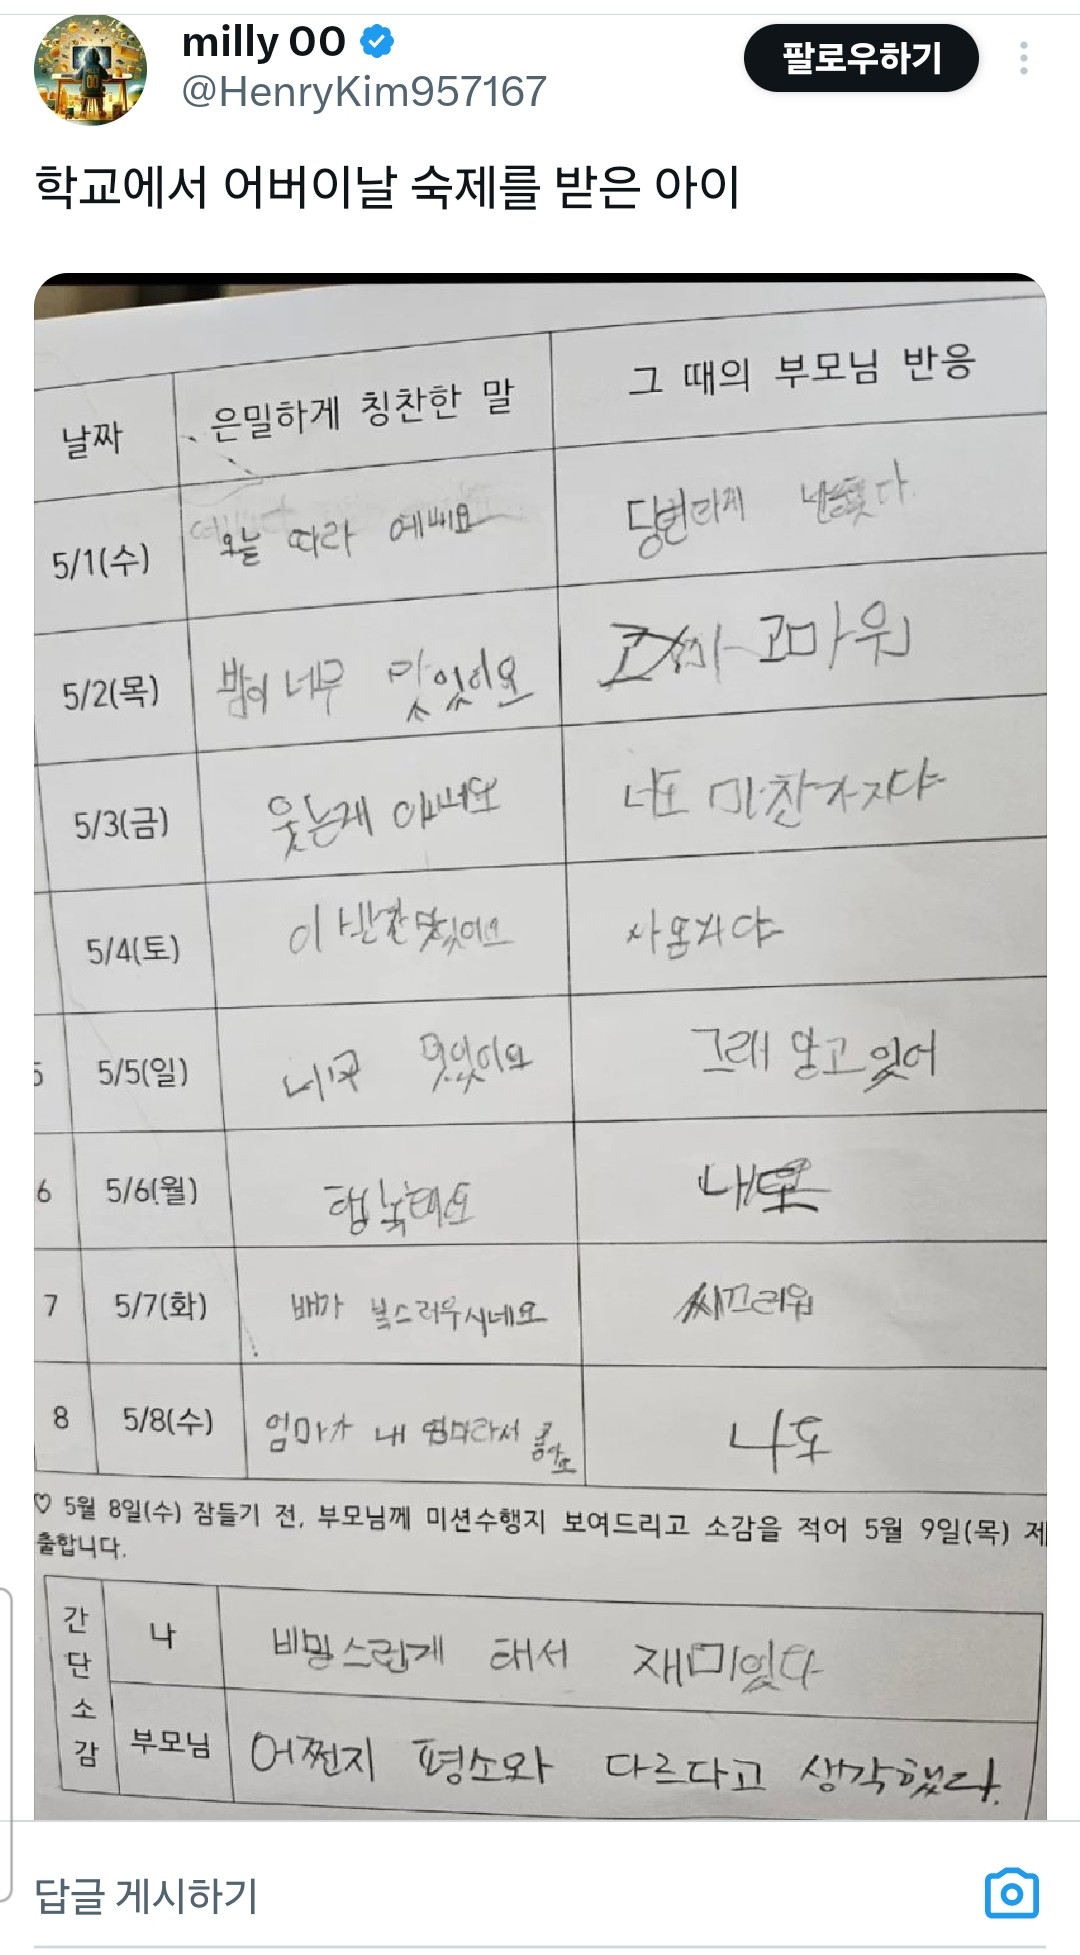 milly 00
@HenryKim957167
팔로우하기
학교에서 어버이날 숙제를 받은 아이
날짜 은밀하게 칭찬한 말 그 때의 부모님 반응
5/1(수) 오늘 따라 에뻐요 당연하게
5/2(목) 밥이 너무 맛있어요 고마워
5/3(금) 웃는게 이뻐요 너도 마찬가지다
5/4(토) 이 반찬 맛있어요 사온거다
5/5(일) 너무 멋있어요 그래 알고 있어
6 5/6(월) 행복해요 나도
7 5/7(화) 배가 복스러우시네요 씨끄러워
8 5/8(수) 엄마가 내 엄마라서 좋아요 나도
♡ 5월 8일(수) 잠들기 전, 부모님께 미션수행지 보여드리고 소감을 적어 5월 9일(목) 제
출합니다.
간단소감
나 비밀스럽게 해서 재미있다
부모님 어쩐지 평소와 다르다고 생각했다.
답글 게시하기